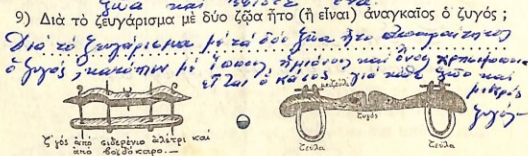 ζῶα καὶ
9) Διὰ τὸ ζευγάρισμα μὲ δύο ζῷα ἦτο (ἢ εἶναι) ἀναγκαῖος ὁ ζυγός;
Διὰ τὸ ζευγάρισμα μὲ τὰ δύο ζῶα ἦτο ἀπαραίτητος
ὁ ζυγός, κατόπιν μὲ ἵππους, ἡμιόνους καὶ ὄνους
ὁ για κάθε ζῶο καὶ
μικρὸς
ζυγός.-
ζυγός
ζ'γός ἀπὸ σιδερένιο ἀλέτρι καὶ
ἀπὸ βοϊδόκαρο.-
ζεύλα
ζεύλα